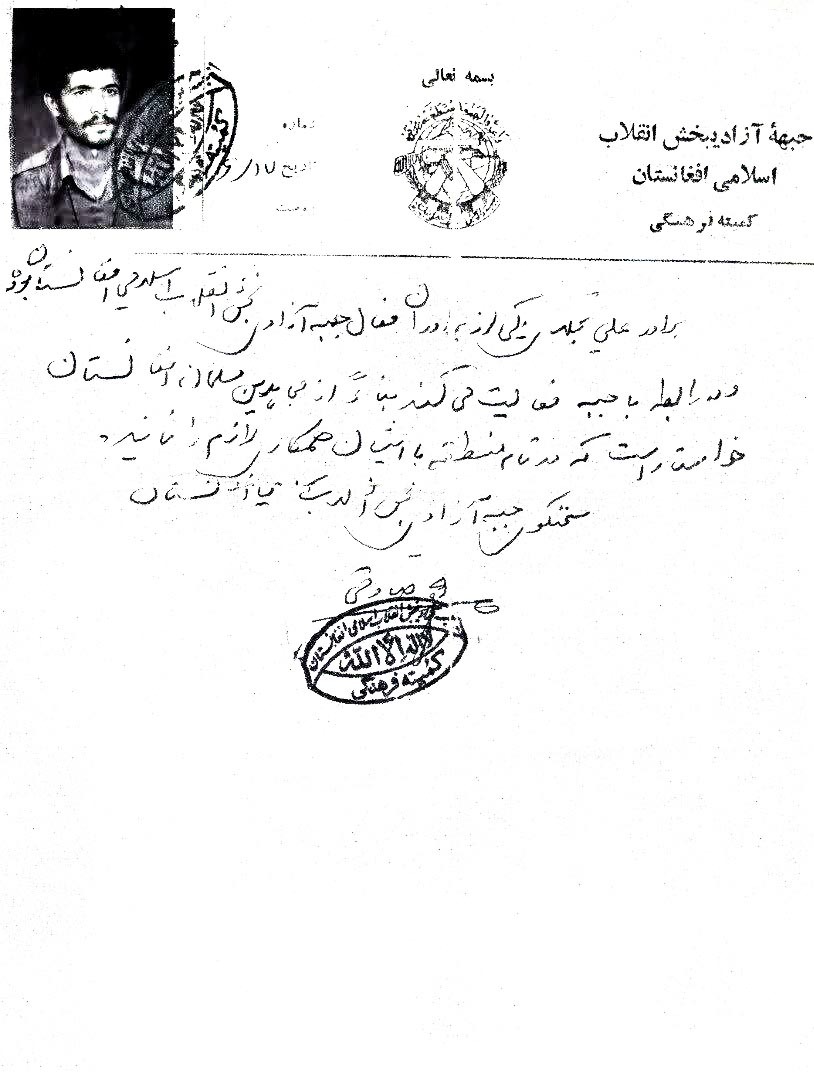 بسمه تعالی
جبههٔ آزادیبخش انقلاب
اسلامی افغانستان
کمیته فرهنگی
شماره
تاریخ ۱۷/
برادر علی تجلائی یکی از برادران فعال جبهه آزادی بخش انقلاب اسلامی افغانستان بوده
و در رابطه با جبهه فعالیت می کند بناءً از مجاهدین مسلمان افغانستان
خواستار است که در تمام منطقه با ایشان همکاری لازم را نمایند.
سخنگوی جبهه آزادی بخش انقلاب اسلامی افغانستان
صادقی
جبهه آزادیبخش انقلاب اسلامی افغانستان
لا اله الا الله
کمیته فرهنگی